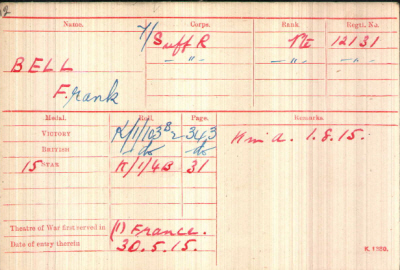 12
Name. Corps. Rank Regtl. No.
7/Suff R Pte 12131
BELL -"- -"- -"-
Frank
Medal. Roll. Page. Remarks.
VICTORY K/1/103B2 343 K in a. 1.8.15.
BRITISH -do- do
15 STAR K/1/4B 31
Theatre of War first served in (1) France.
Date of entry therein 30.5.15.
K. 1380.